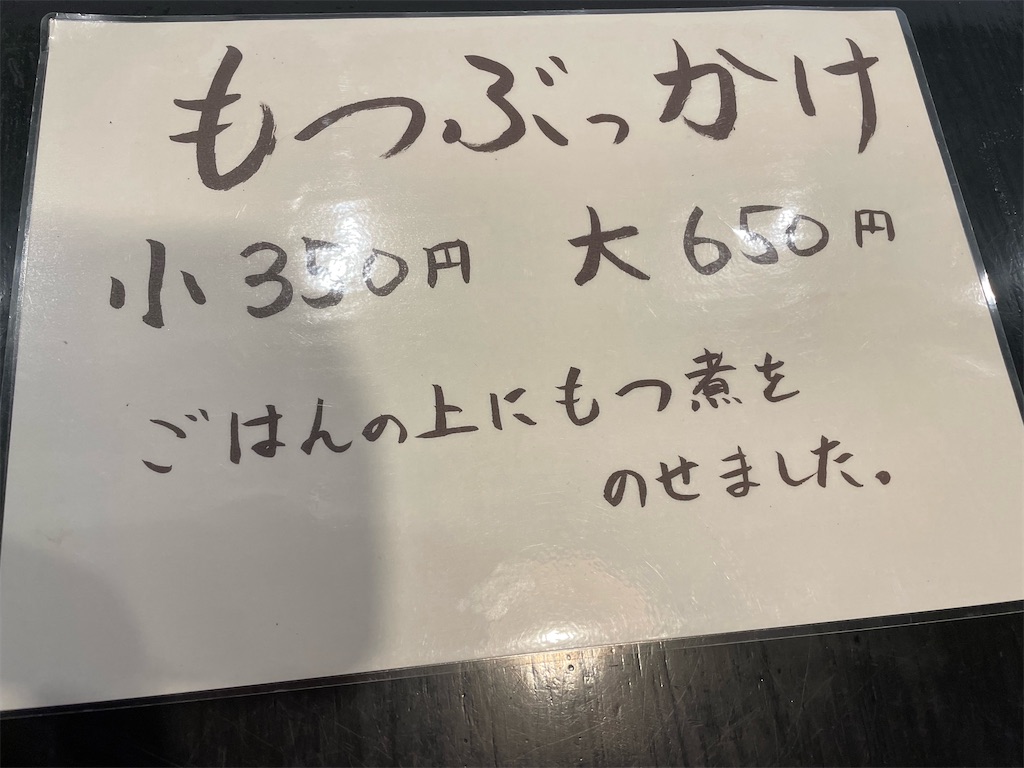 もつぶっかけ
小 350円 大 650円
ごはんの上にもつ煮を
のせました。